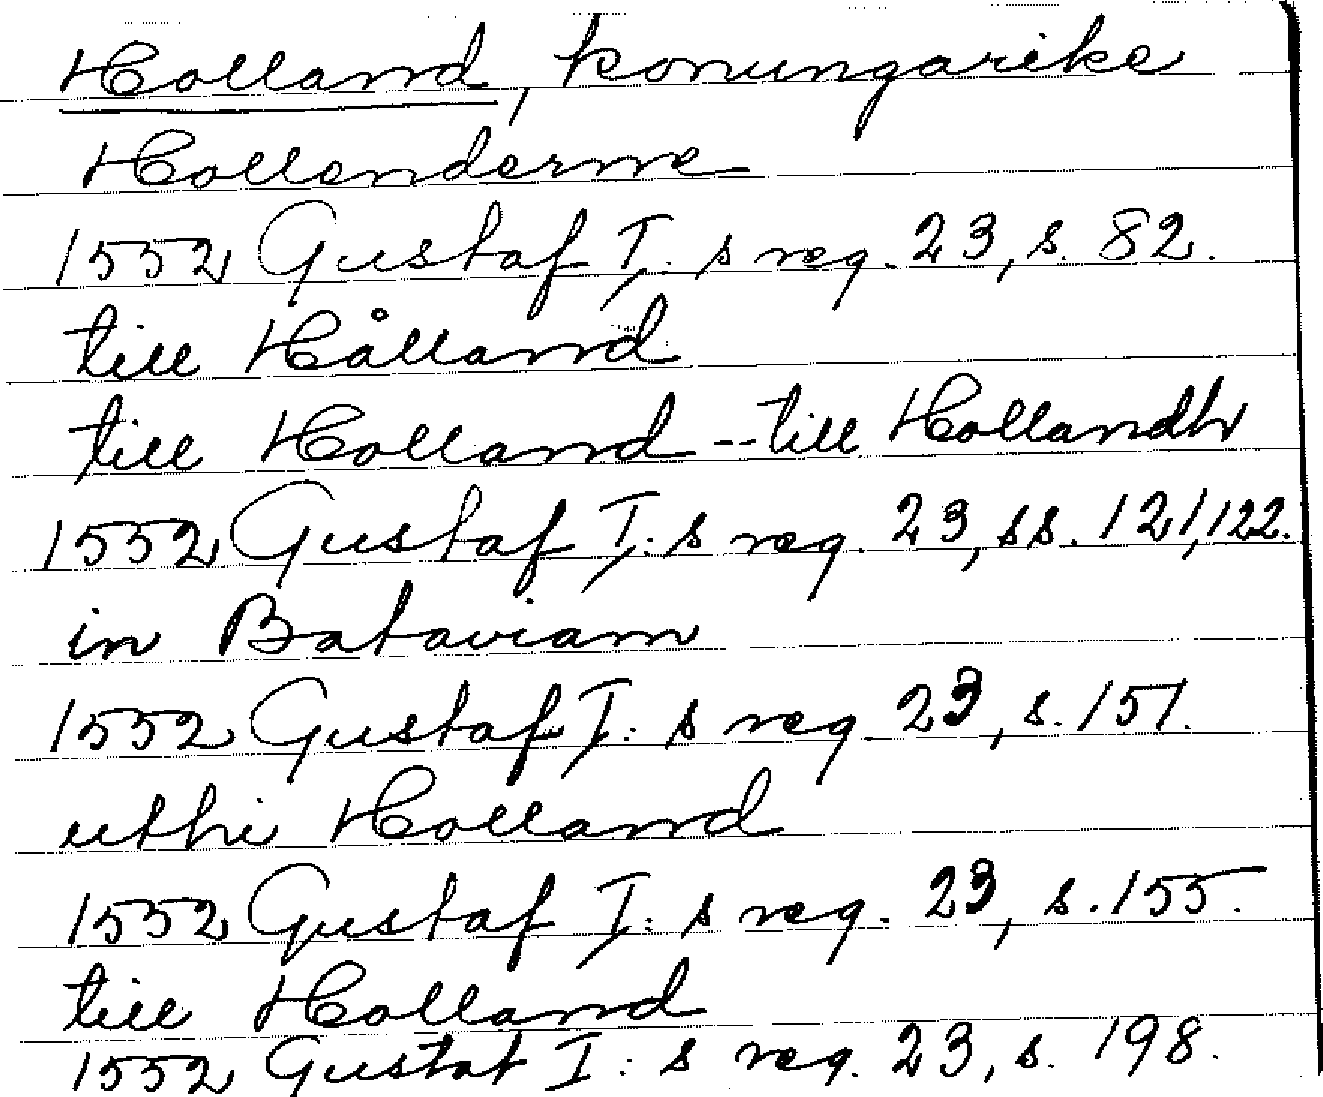 Holland, konungarike
Hollenderne
1552 Gustaf I: s reg. 23, s. 82.
till Hålland
till Holland -- till Hollandh
1552 Gustaf I: s reg. 23, ss. 121, 122.
in Bataviam
1552 Gustaf I: s reg. 23, s. 151.
uthi Holland
1552 Gustaf I: s reg. 23, s. 155.
till Holland
1552 Gustaf I: s reg. 23, s. 198.